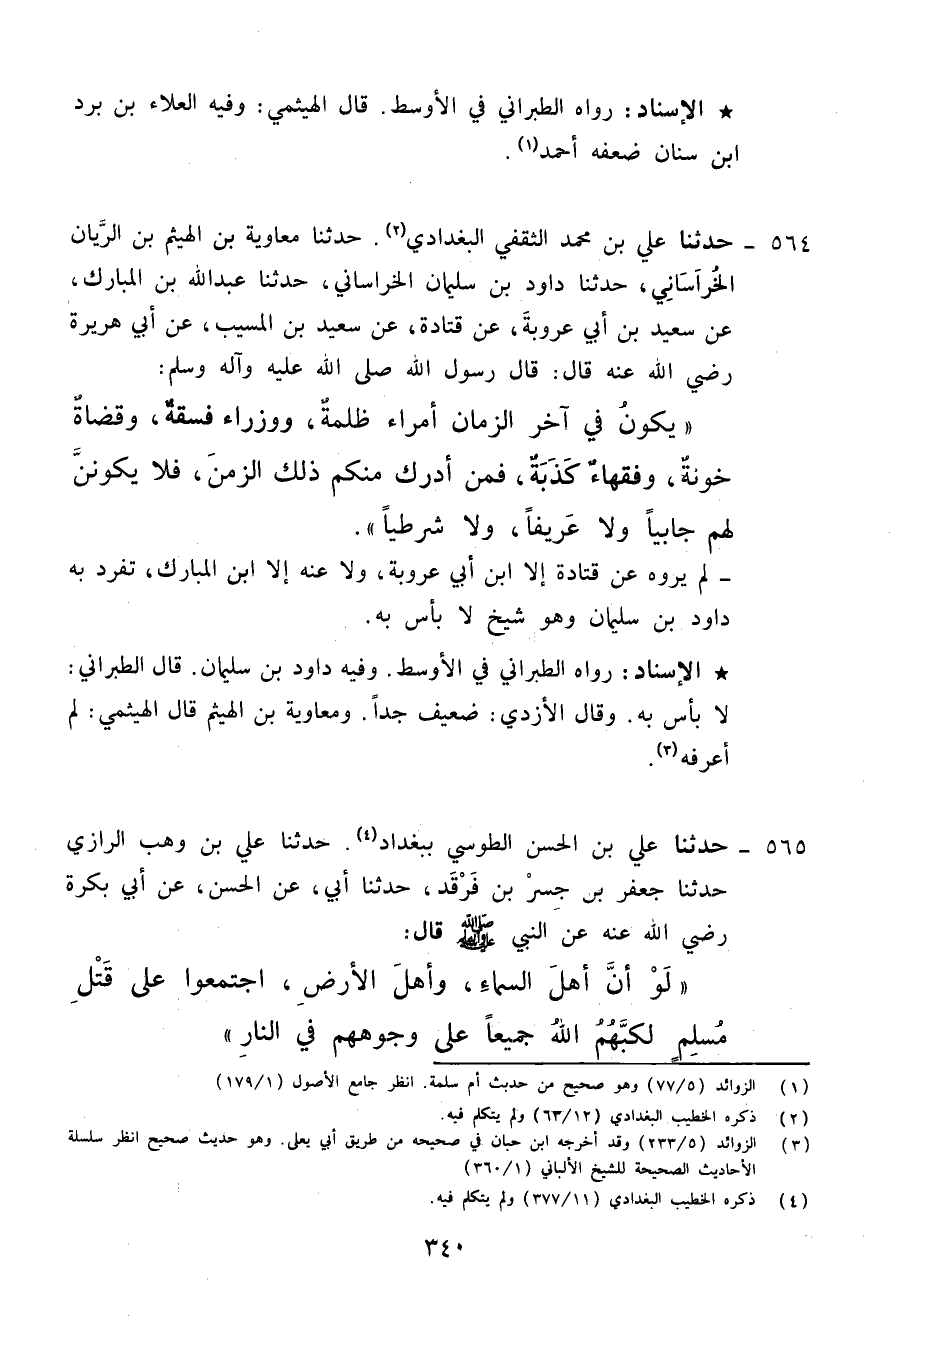 ★ الإسناد: رواه الطبراني في الأوسط. قال الهيثمي: وفيه العلاء بن برد
ابن سنان ضعفه أحمد(١).
٥٦٤ - حدثنا علي بن محمد الثقفي البغدادي(٢). حدثنا معاوية بن الهيثم بن الرَّيان
الخُراَسَانِي، حدثنا داود بن سليمان الخراساني، حدثنا عبدالله بن المبارك،
عن سعيد بن أبي عروبةَ، عن قتادة، عن سعيد بن المسيب، عن أبي هريرة
رضي الله عنه قال: قال رسول الله صلى الله عليه وآله وسلم:
« يكونُ في آخر الزمان أمراء ظلمةٌ، ووزراء فسقةٌ، وقضاةٌ
خونةٌ، وفقهاءٌ كَذَبَةٌ، فمن أدرك منكم ذلك الزمنَ، فلا يكوننَّ
لهم جابياً ولا عَريفاً، ولا شرطياً».
- لم يروه عن قتادة إلا ابن أبي عروبة، ولا عنه إلا ابن المبارك، تفرد به
داود بن سليمان وهو شيخ لا بأس به.
★ الإسناد: رواه الطبراني في الأوسط. وفيه داود بن سليمان. قال الطبراني:
لا بأس به. وقال الأزدي: ضعيف جداً. ومعاوية بن الهيثم قال الهيثمي: لم
أعرفه(٣).
٥٦٥ - حدثنا علي بن الحسن الطوسي ببغداد(٤). حدثنا علي بن وهب الرازي
حدثنا جعفر بن جسرْ بن فَرْقَد، حدثنا أبي، عن الحسن، عن أبي بكرة
رضي الله عنه عن النبي ﷺ قال:
« لَوْ أنَّ أهلَ السماءِ، وأهلَ الأرضِ، اجتمعوا على قَتْلِ
مُسلِمٍ لكبَّهُمُ اللهُ جميعاً على وجوههم في النارِ »
(١) الزوائد (٧٧/٥) وهو صحيح من حديث أم سلمة. انظر جامع الأصول (١٧٩/١)
(٢) ذكره الخطيب البغدادي (٦٣/١٢) ولم يتكلم فيه.
(٣) الزوائد (٢٣٣/٥) وقد أخرجه ابن حبان في صحيحه من طريق أبي يعلى. وهو حديث صحيح انظر سلسلة
الأحاديث الصحيحة للشيخ الألباني (٣٦٠/١)
(٤) ذكره الخطيب البغدادي (٣٧٧/١١) ولم يتكلم فيه.
٣٤٠